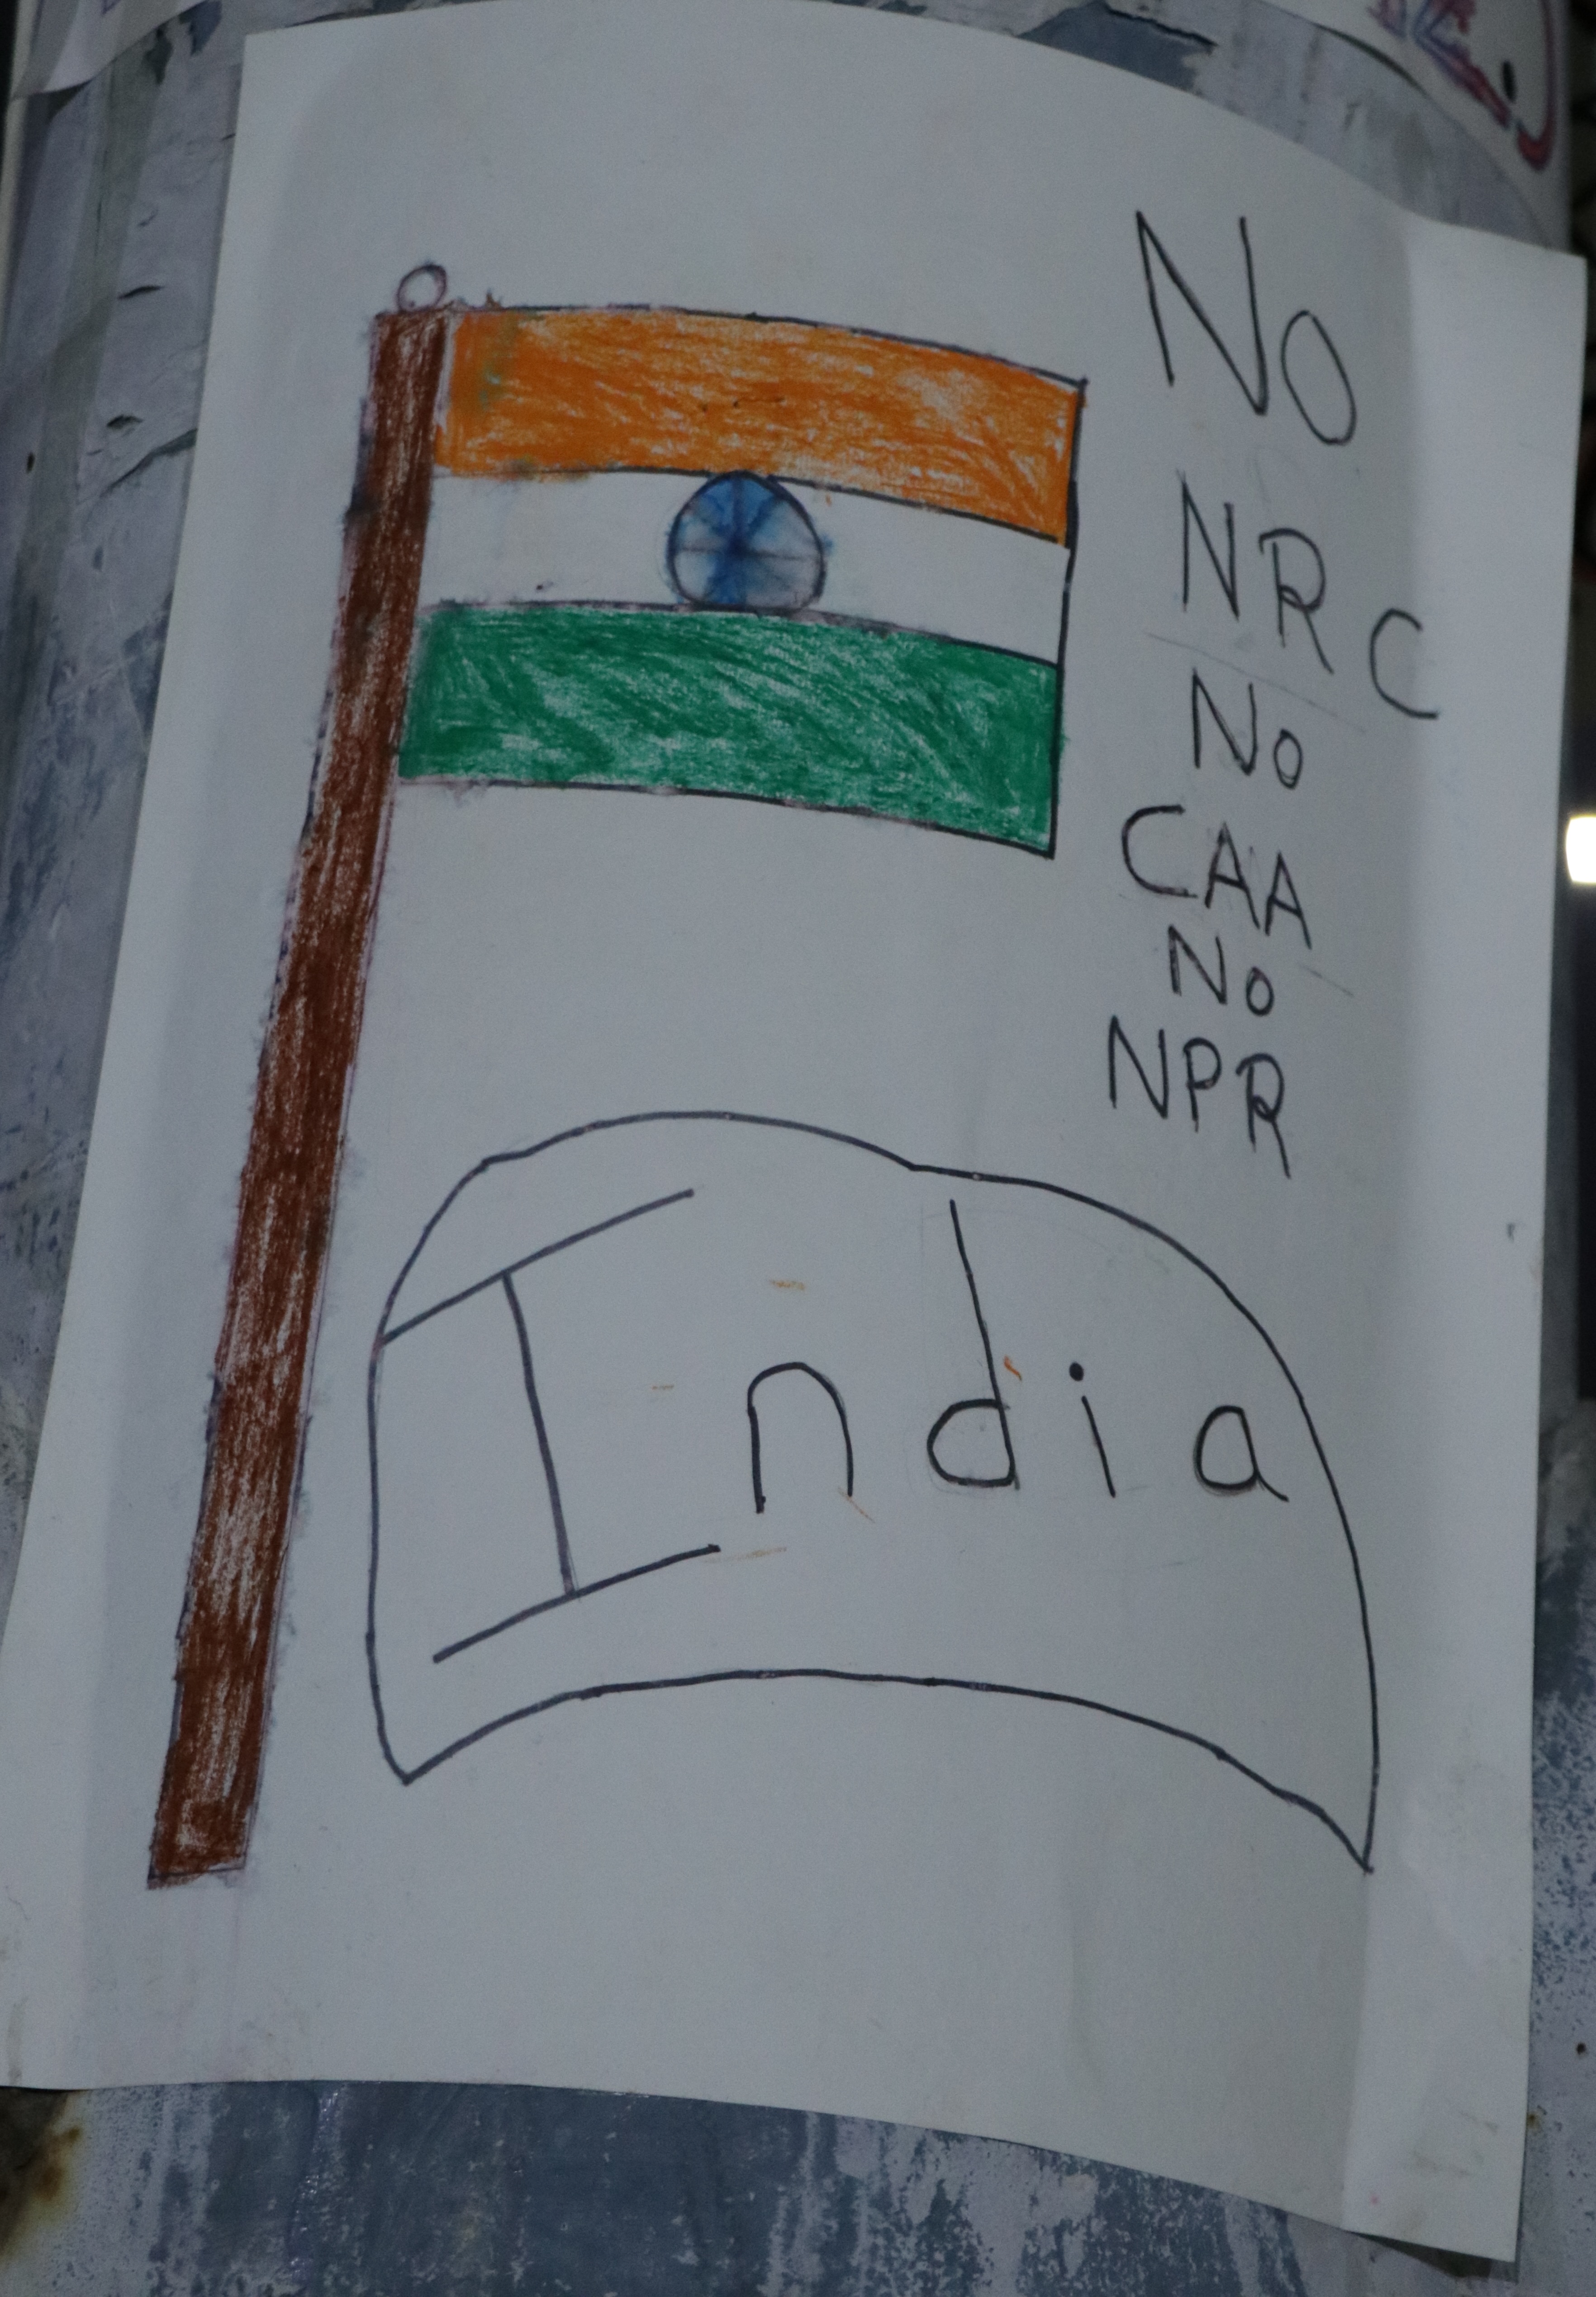 NO
NRC
No
CAA
No
NPR
India